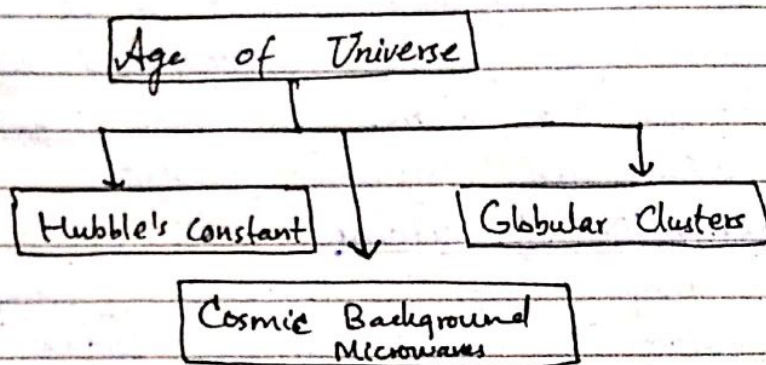 Age of Universe
Hubble's constant
Globular Clusters
Cosmic Background
Microwaves